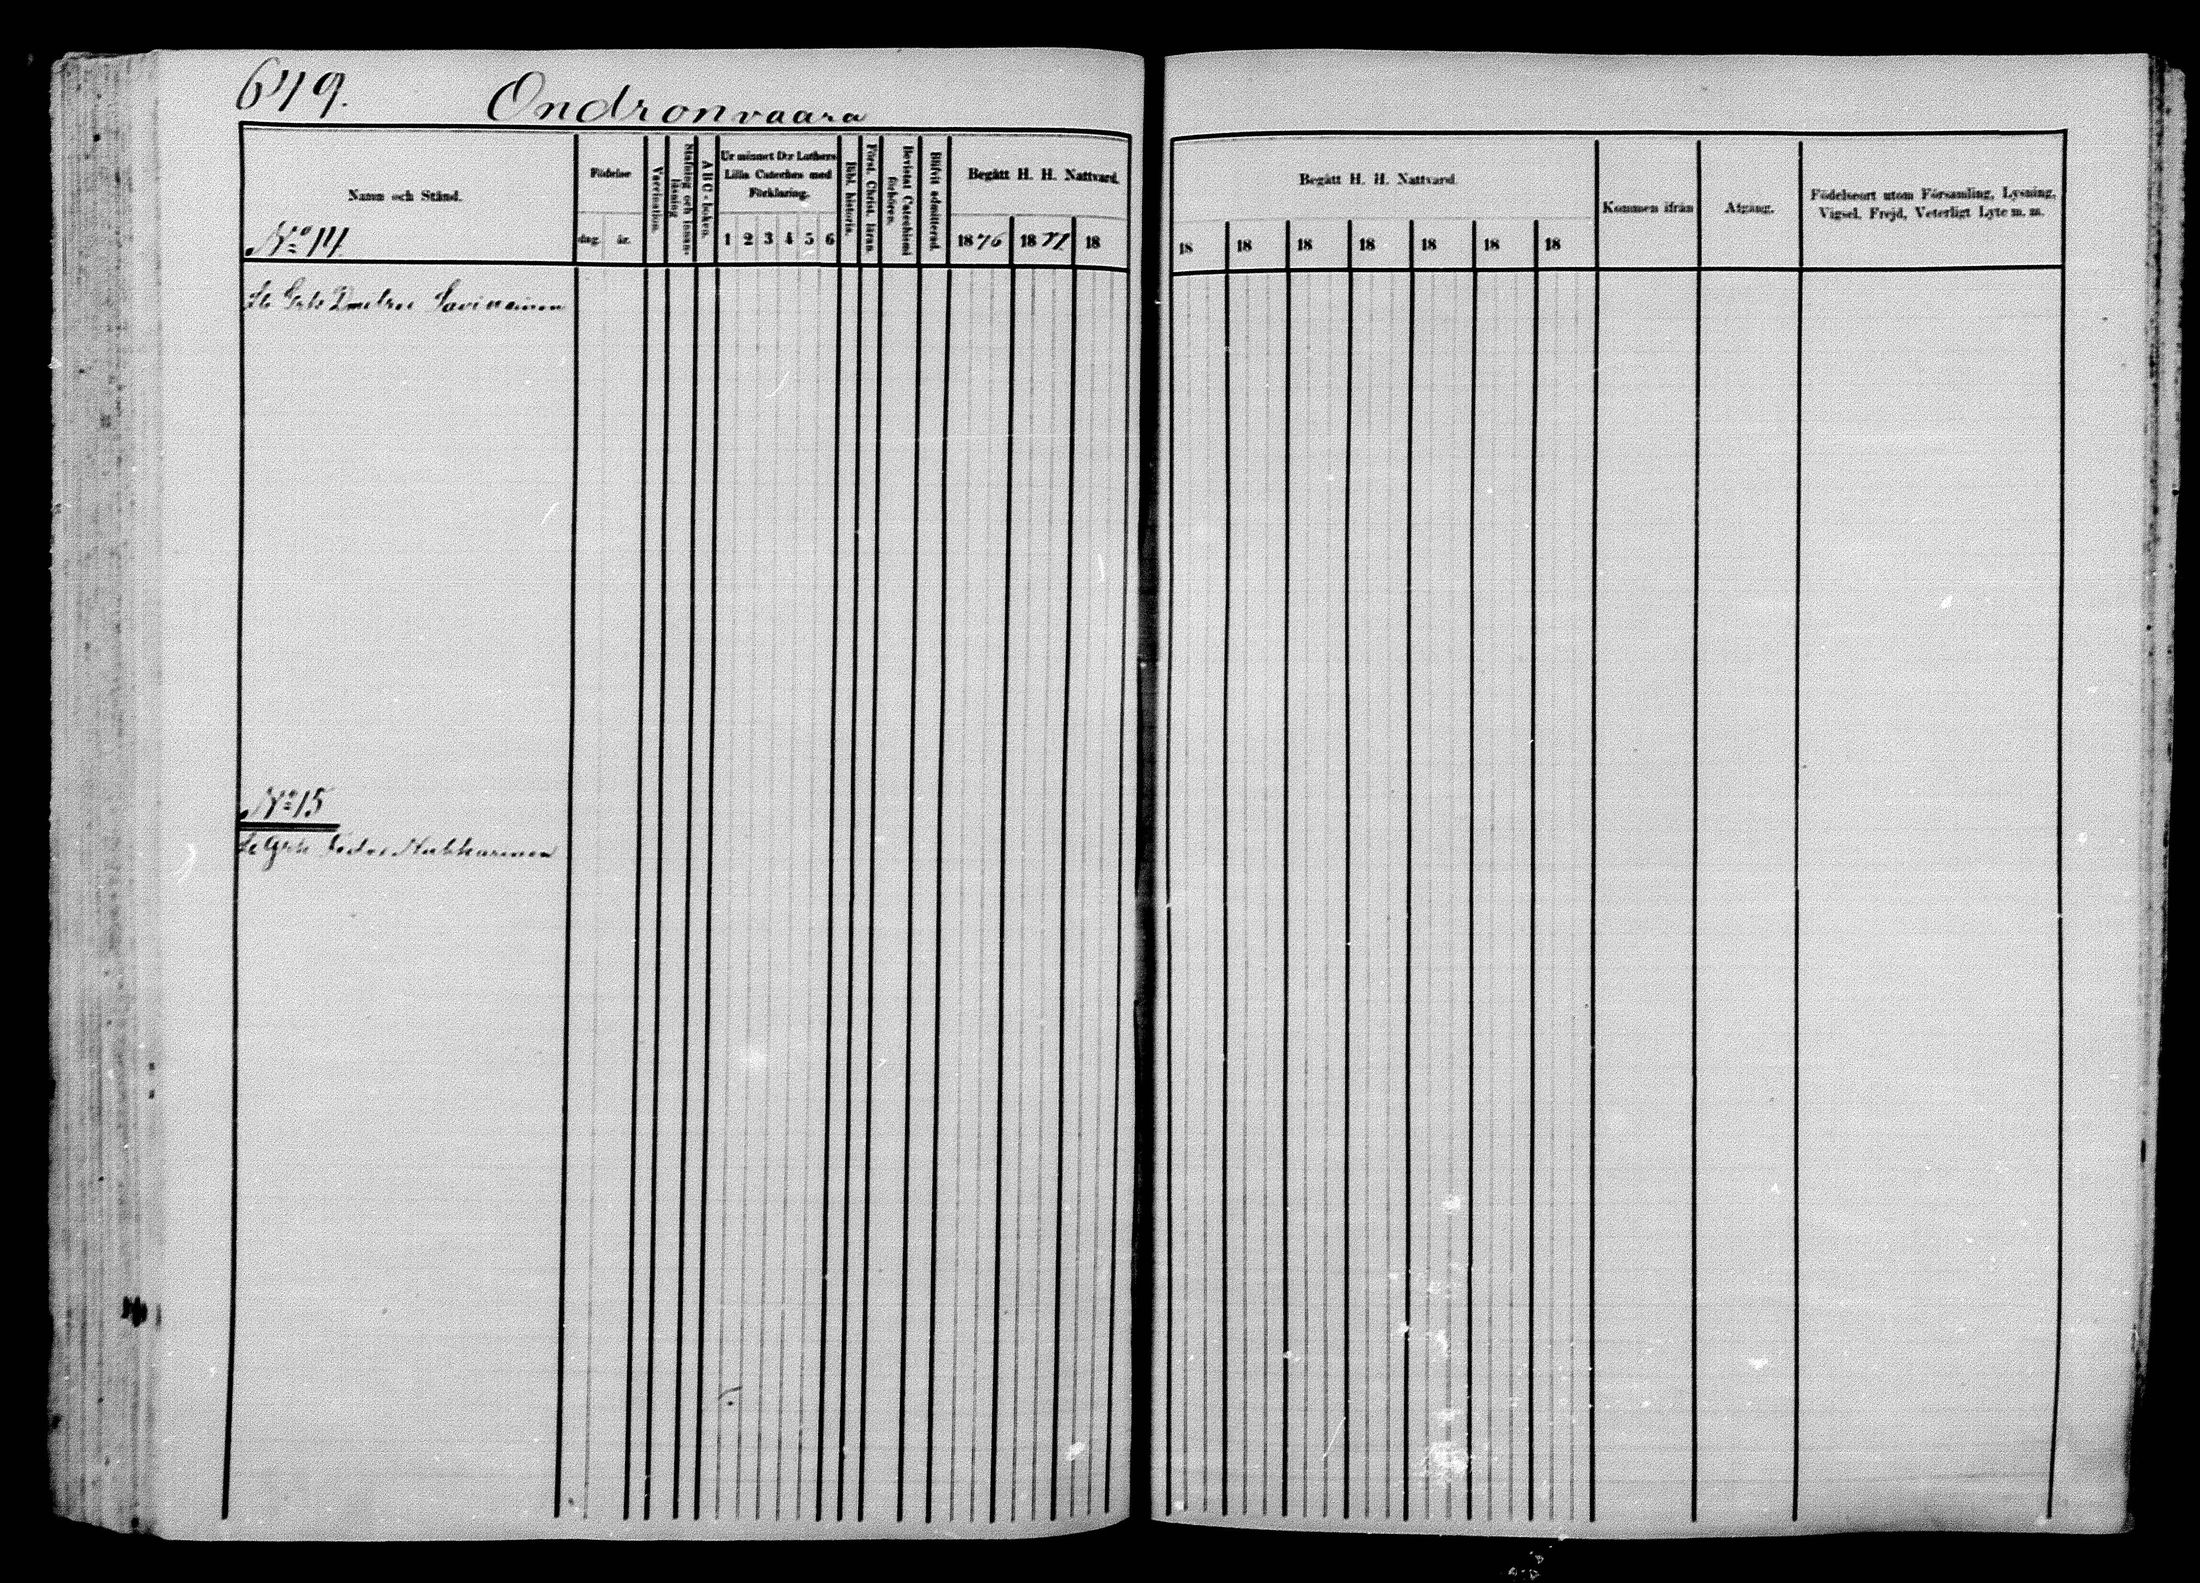 679.
Ondronvaara
Namn och Stånd.
Födelse
dag.
år.
Vaccination.
Stafning och innanläsning
A B C-boken.
Ur minnet D:r Luthers Lilla Cateches med Förklaring.
1 2 3 4 5 6
Bibl. historia.
Först. Christ. läran.
Bevistat Catechismi förhören.
Blifvit admitterad.
Begått H. H. Nattvard.
1876 1877 18
Begått H. H. Nattvard
18 18 18 18 18 18 18
Kommen ifrån
Afgång.
Födelseort utom Församling, Lysning,
Vigsel, Frejd, Veterligt Lyte m. m.
No 14
Savinainen
No 15